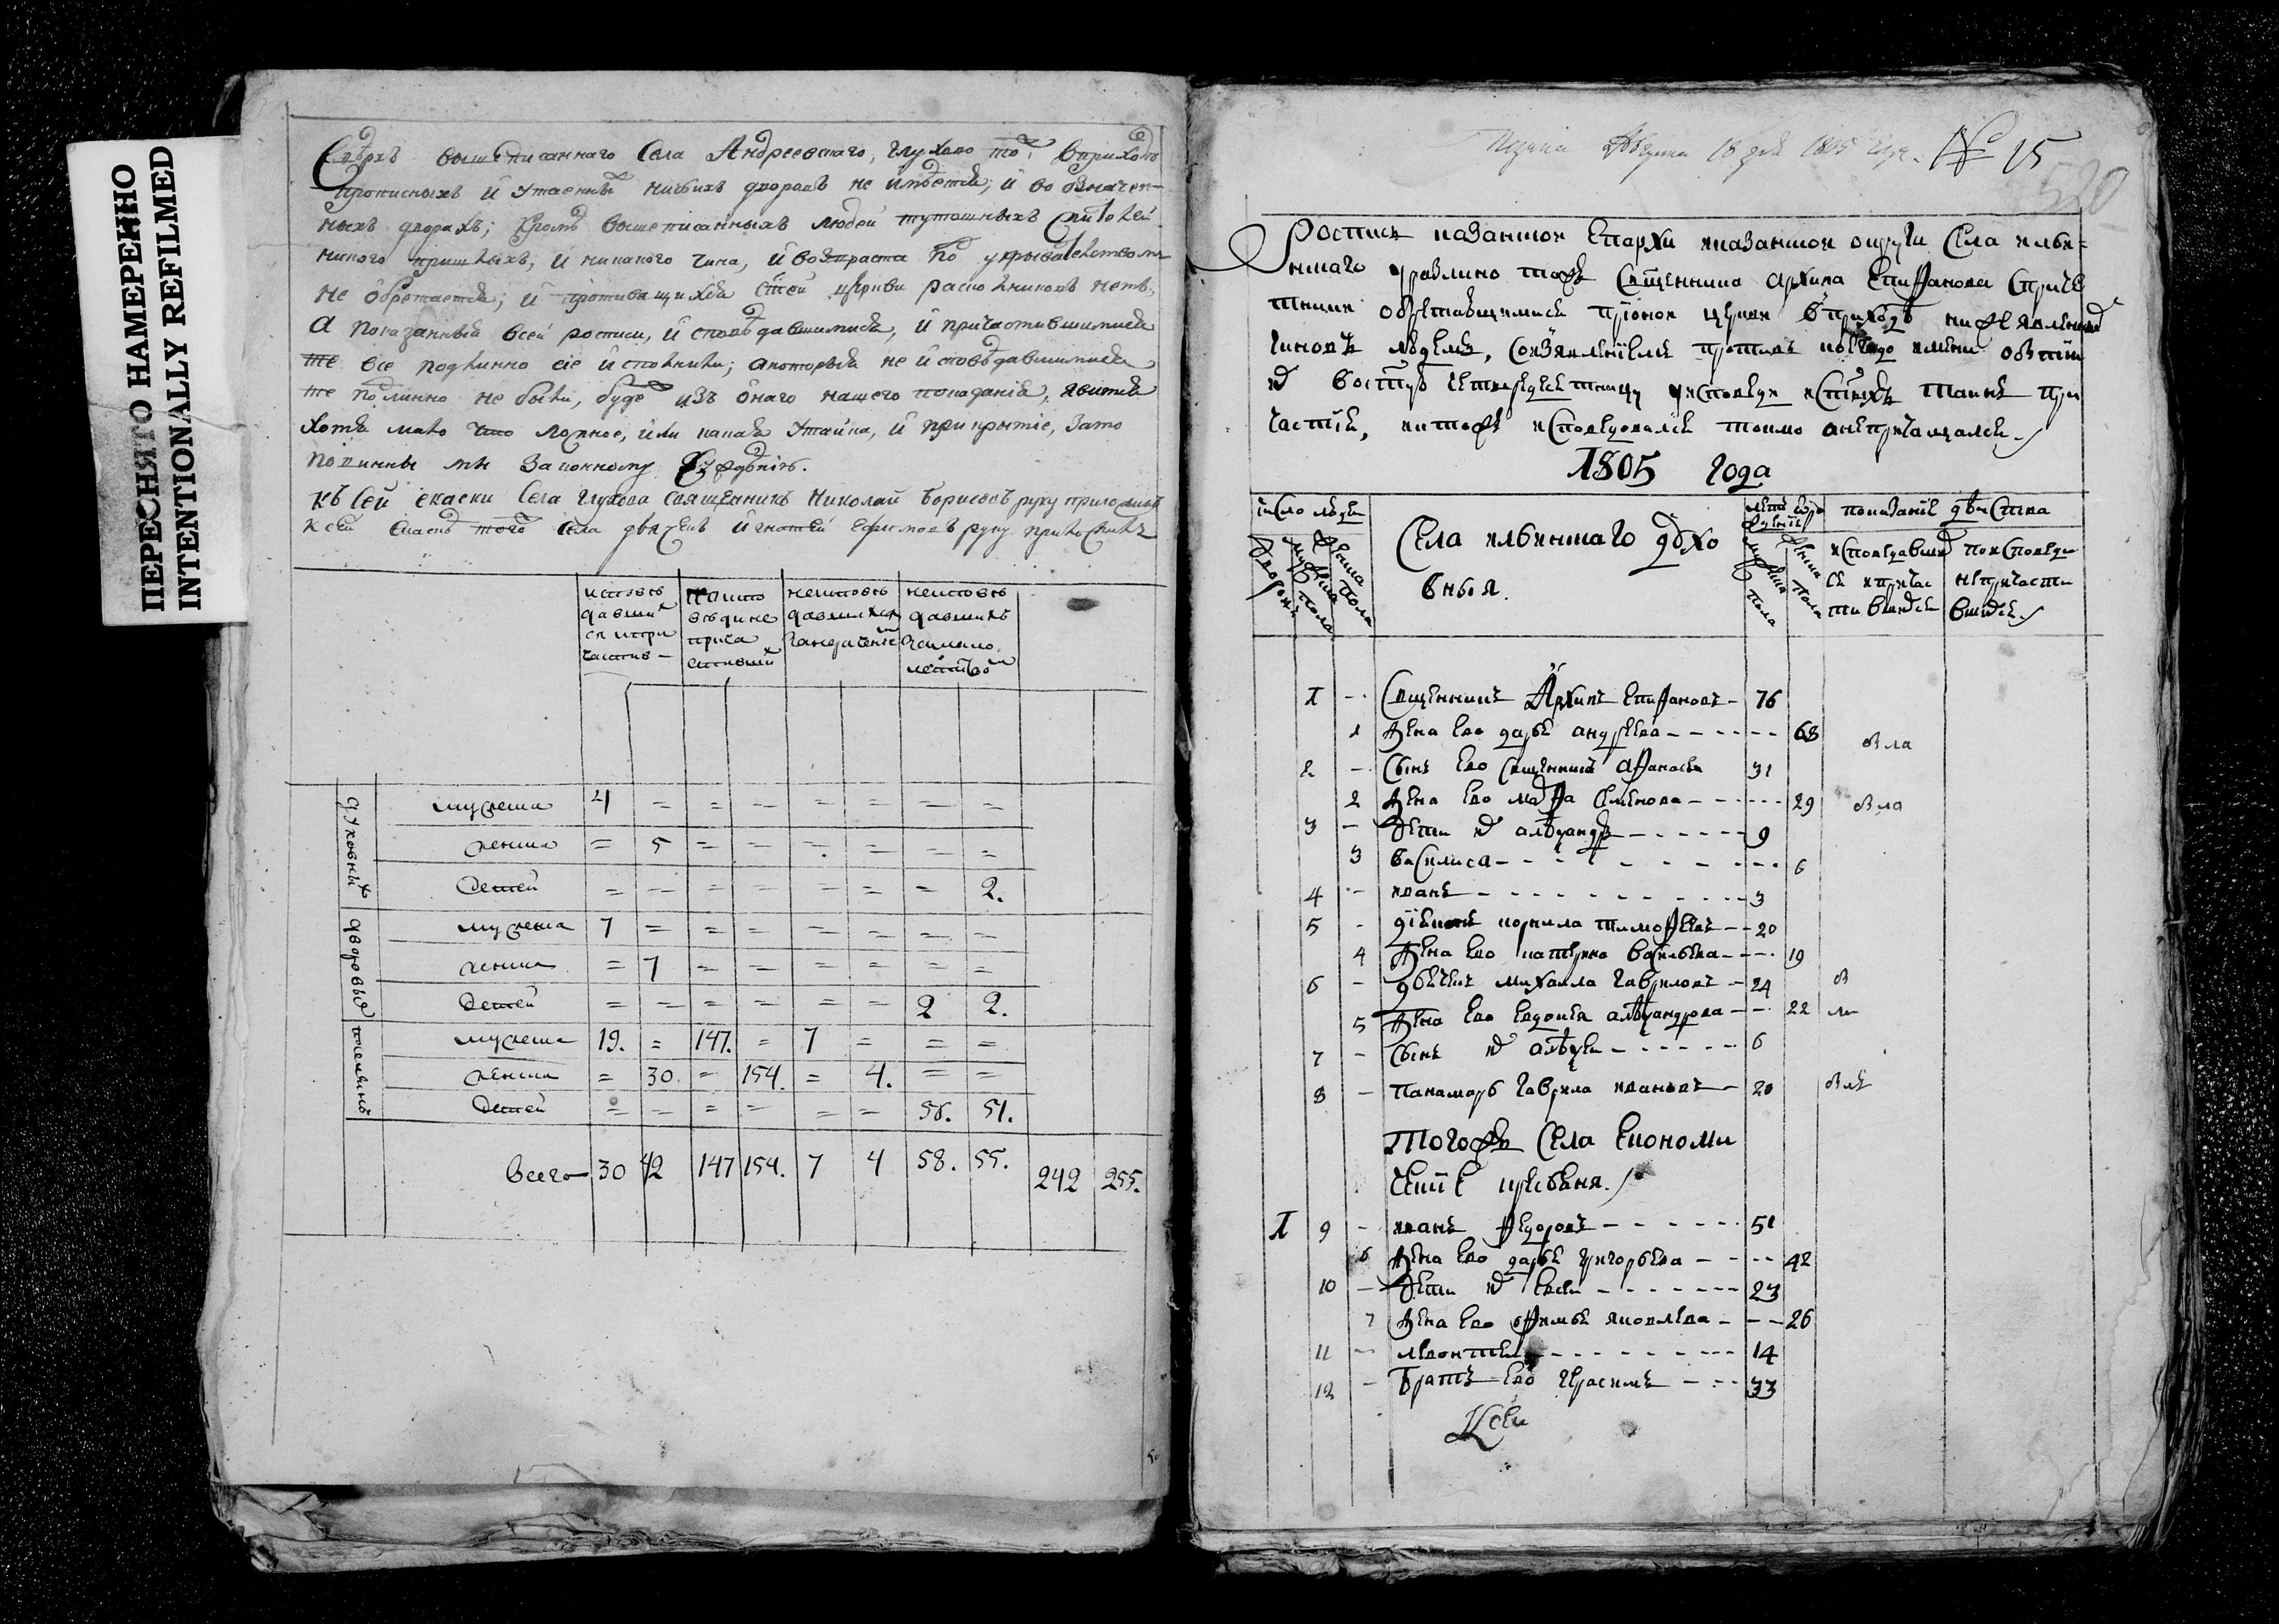 ПЕРЕСНЯТО НАМЕРЕННО
INTENTIONALLY REFILMED
Сверхъ вышеписаннаго Села Андреевскаго, Глухово тожъ вприходѣ
прописныхъ и утаенныхъ никакихъ дворовъ не имѣется; и во означен-
ныхъ дворахъ; кромѣ вышеписанныхъ людей тутошныхъ жителей
никого пришлыхъ, и никакого чина, и возраста по укрывательствомъ
не обретается; и противящихся стей церкви раскольниковъ нетъ,
а показанныя всей росписи, и исповѣдавшимися, и причастившимися
те все подлинно сіе исполнили; а которыя не исповѣдавшимися
те подлинно не были, буде изъ онаго нашего показанія, явится
хотя мало что ложное, или какая утайка, и прикрытіе, зато
повинны мы законному
къ сей скаски Села Глухова священникъ Николай Борисовъ руку приложилъ
к сей скаскѣ того села дьячекъ Игнатей Ефимовъ руку приложилъ
исповѣ давших ся и при частив–
по испо вѣди не прича стивших
неисповѣ давшихся
неисповѣ давшихъ
духовных
мужеска 4 = = – = = – =
женска = 5 = – – = – =
детей = – = = – = – 2.
дворовых
мужеска 7 = = = = = = =
женска = 7 = – = = = =
детей = – = = = = 2 2.
мужеска 19. = 147. = 7 = = =
женска = 30. = 154. = 4. = =
детей = – = = – = 56. 51.
Всего 30 42 147 154. 7 4 58. 55. 242 255.
Августа 18 дня 1805 года. № 15
520
Роспись казанской Епархи казанской округи Села
священника Архипа Епифанова с приче
тники обретающимися прионой церкви в приходѣ нижеявленныхъ
чиновъ людемъ, со изъявленіемъ противъ коегождо имени о бытіи
ихъ во стую четыредесятницу у исповеди и стыхъ таинъ при
частія, и ктожъ исповедовался токмо а непричащался.
1805 года
число людей
дворовъ
мужеска пола
женска пола
Села духо
вныя.
мужеска пола
женска пола
показаніе действа
исповедавших ся и причас тившихся
по исповеди не причасти вшихся
1 – Священникъ Архипъ Епифановъ – 76
1 Жена ево дарья андреева – – – 68
2 – Сынъ ево священникъ Афанасей 31
2 Жена ево марфа семенова – – – 29
3 – Дети их алеѯандръ – – – 9
3 василиса – – – 6
4 – иванъ – – – 3
5 – діаконъ корнила тимофеевъ – – 20
4 Жена ево катерина васильева – – – 19
6 – дьячекъ михайла гавриловъ – 24
5 Жена ево евдокея алеѯандрова – – 22
7 – Сынъ их алеѯей – – – 6
8 – Панамарь гаврила ивановъ – 20
Тогожъ Села Економи
ческие крестьяня.
1 9 – иванъ Федоровъ – – – 51
6 Жена ево дарья григорьева – – – 42
10 – Дети их евсей – – – 23
7 Жена ево офимья яковлева – – – 26
11 – леонтей – – – 14
12 – Братъ ево герасимъ – – – 33